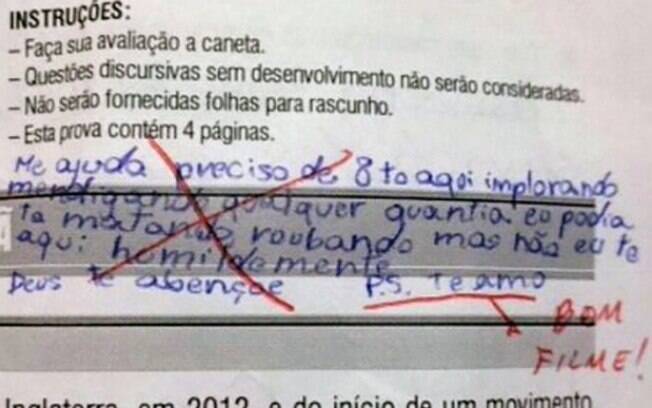 INSTRUÇÕES:
– Faça sua avaliação a caneta.
– Questões discursivas sem desenvolvimento não serão consideradas.
– Não serão fornecidas folhas para rascunho.
– Esta prova contém 4 páginas.
Me ajuda preciso de 8 to aqui implorando
mendigando qualquer quantia eu podia
ta matando roubando mas não eu to
aqui humildemente
Deus te abençoe P.S. Te amo
BOM
FILME!
Inglaterra, em 2012, e do início de um movimento